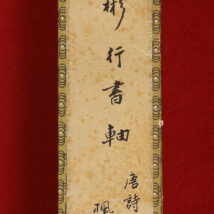 彬行書軸
唐詩
楓